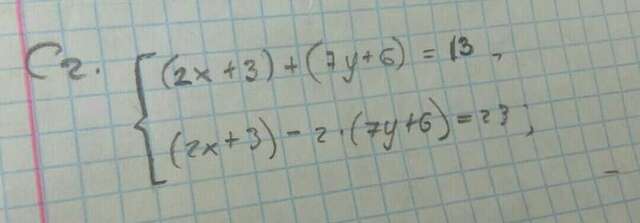 C2. (2x+3)+(7y+6)=13,
(2x+3)-2·(7y+6)=23;